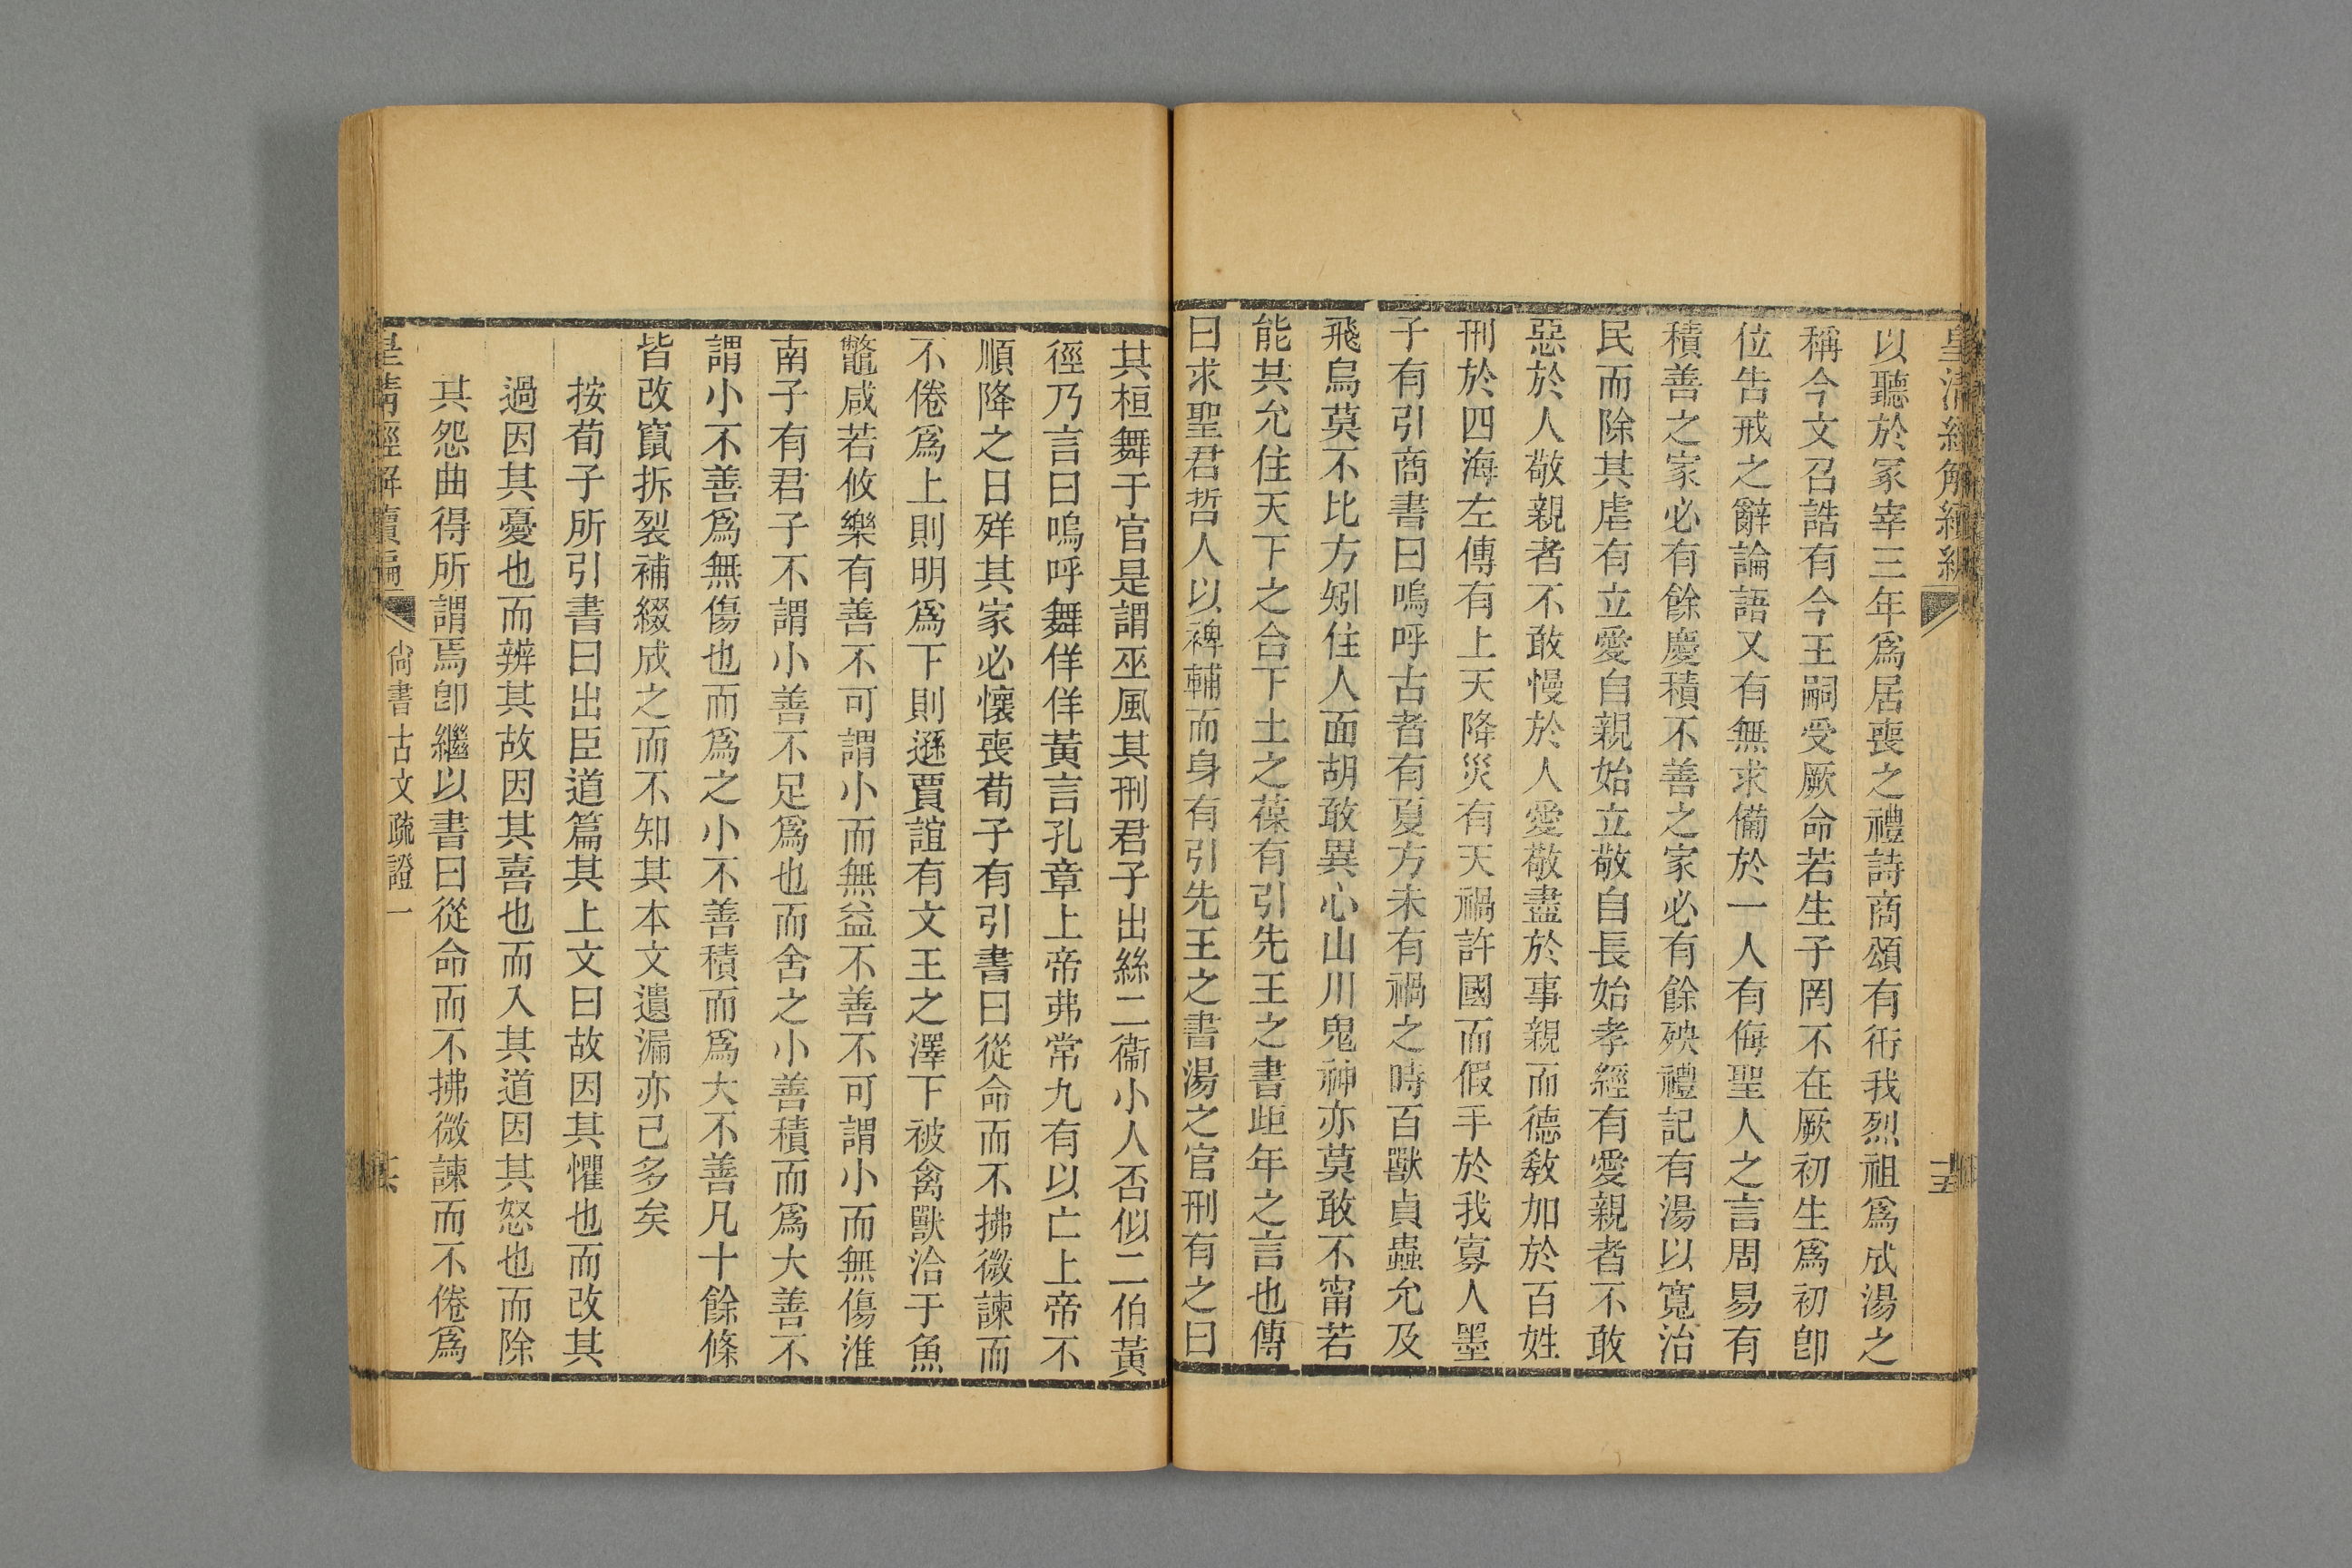 皇清經解續編
以聽於冢宰三年爲居喪之禮詩商頌有衎我烈祖爲成湯之
稱今文召誥有今王嗣受厥命若生子罔不在厥初生爲初卽
位告戒之辭論語又有無求備於一人有侮聖人之言周易有
積善之家必有餘慶積不善之家必有餘殃禮記有湯以寬治
民而除其虐有立愛自親始立敬自長始孝經有愛親者不敢
惡於人敬親者不敢慢於人愛敬盡於事親而德敎加於百姓
刑於四海左傳有上天降災有天禍許國而假手於我寡人墨
子有引商書曰嗚呼古者有夏方未有禍之時百獸貞蟲允及
飛鳥莫不比方矧住人面胡敢異心山川鬼神亦莫敢不甯若
能共允住天下之合下土之葆有引先王之書歫年之言也傳
曰求聖君哲人以裨輔而身有引先王之書湯之官刑有之曰
其桓舞于官是謂巫風其刑君子出絲二衞小人否似二伯黃
徑乃言曰嗚呼舞佯佯黃言孔章上帝弗常九有以亡上帝不
順降之日殍其家必懷喪荀子有引書曰從命而不拂微諫而
不倦爲上則明爲下則遜賈誼有文王之澤下被禽獸洽于魚
鼈咸若攸樂有善不可謂小而無益不善不可謂小而無傷淮
南子有君子不謂小善不足爲也而舍之小善積而爲大善不
謂小不善爲無傷也而爲之小不善積而爲大不善凡十餘條
皆改竄拆裂補綴成之而不知其本文遺漏亦己多矣
按荀子所引書曰出臣道篇其上文曰故因其懼也而改其
過因其憂也而辨其故因其喜也而入其道因其怒也而除
其怨曲得所謂焉卽繼以書曰從命而不拂微諫而不倦爲
皇清經解續編 尚書古文疏證一